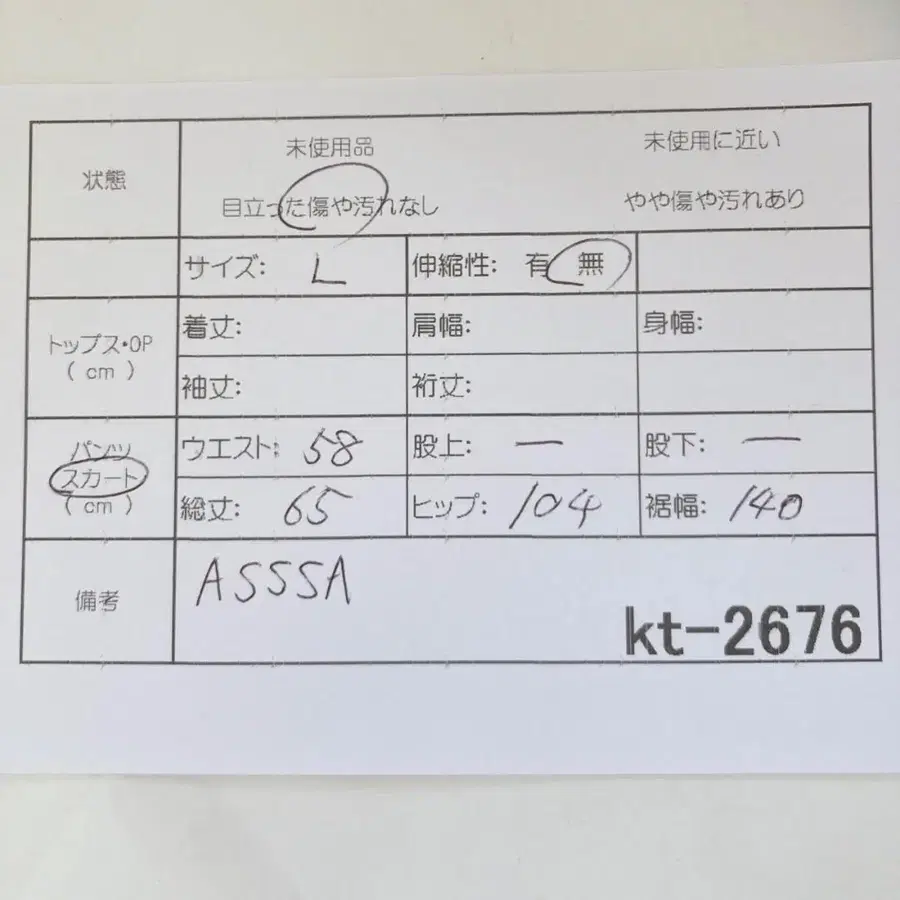 状態 未使用品 未使用に近い
目立った傷や汚れなし やや傷や汚れあり
サイズ: L 伸縮性: 有 無
トップス・OP
( cm )
着丈: 肩幅: 身幅:
袖丈: 裄丈:
パンツ
スカート
( cm )
ウエスト: 58 股上: ー 股下: ー
総丈: 65 ヒップ: 104 裾幅: 140
備考 ASSSA
kt-2676